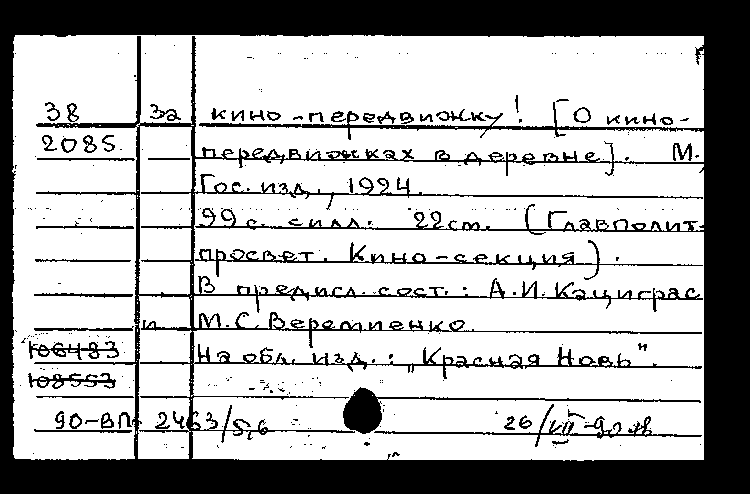 38 За кино-передвижку! [О кино-
2085 передвижках в деревне]. М.,
Гос. изд., 1924.
99 с. с илл. 22 см. (Главполит-
просвет. Кино-секция).
В предисл. сост.: А.И. Кациграс
и М.С. Веремиенко.
106483 На обл. изд.: „Красная Новь".
108553
90-ВП 2463/5,6 26/VII-90